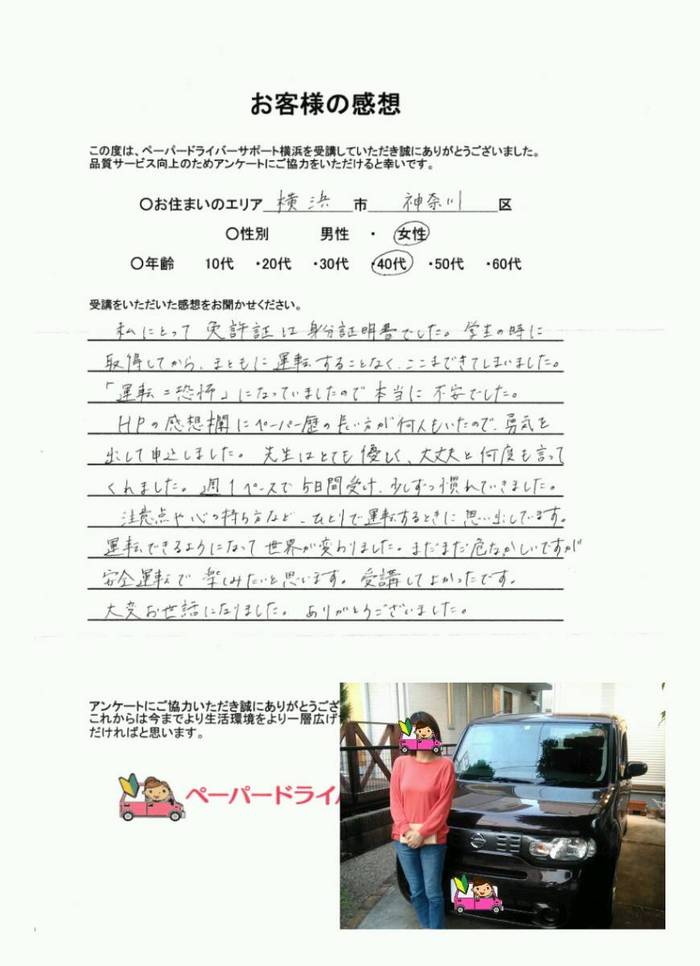 お客様の感想
この度は、ペーパードライバーサポート横浜を受講していただき誠にありがとうございました。
品質サービス向上のためアンケートにご協力をいただけると幸いです。
〇お住まいのエリア 横浜 市 神奈川 区
〇性別 男性 ・ 女性
〇年齢 10代 ・20代 ・30代 ・40代 ・50代 ・60代
受講をいただいた感想をお聞かせください。
私にとって 免許証は 身分証明書でした。 学生の時に
取得してから、まともに運転することなく、ここまできてしまいました。
「運転=恐怖」になっていましたので 本当に 不安でした。
HPの感想欄にペーパー歴の長い方が何人もいたので、勇気を
出して申込しました。 先生はとても優しく、大丈夫と何度も言って
くれました。週1ペースで5日間受け、少しずつ慣れていきました。
注意点や心の持ち方など、ひとりで運転するときに 思い出しています。
運転できるようになって 世界が変わりました。まだまだ危なかしいですが
安全運転で 楽しみたいと思います。 受講してよかったです。
大変お世話になりました。 ありがとうございました。
アンケートにご協力いただき誠にありがとうござ
これからは今までより生活環境をより一層広げ
だければと思います。
ペーパードライ